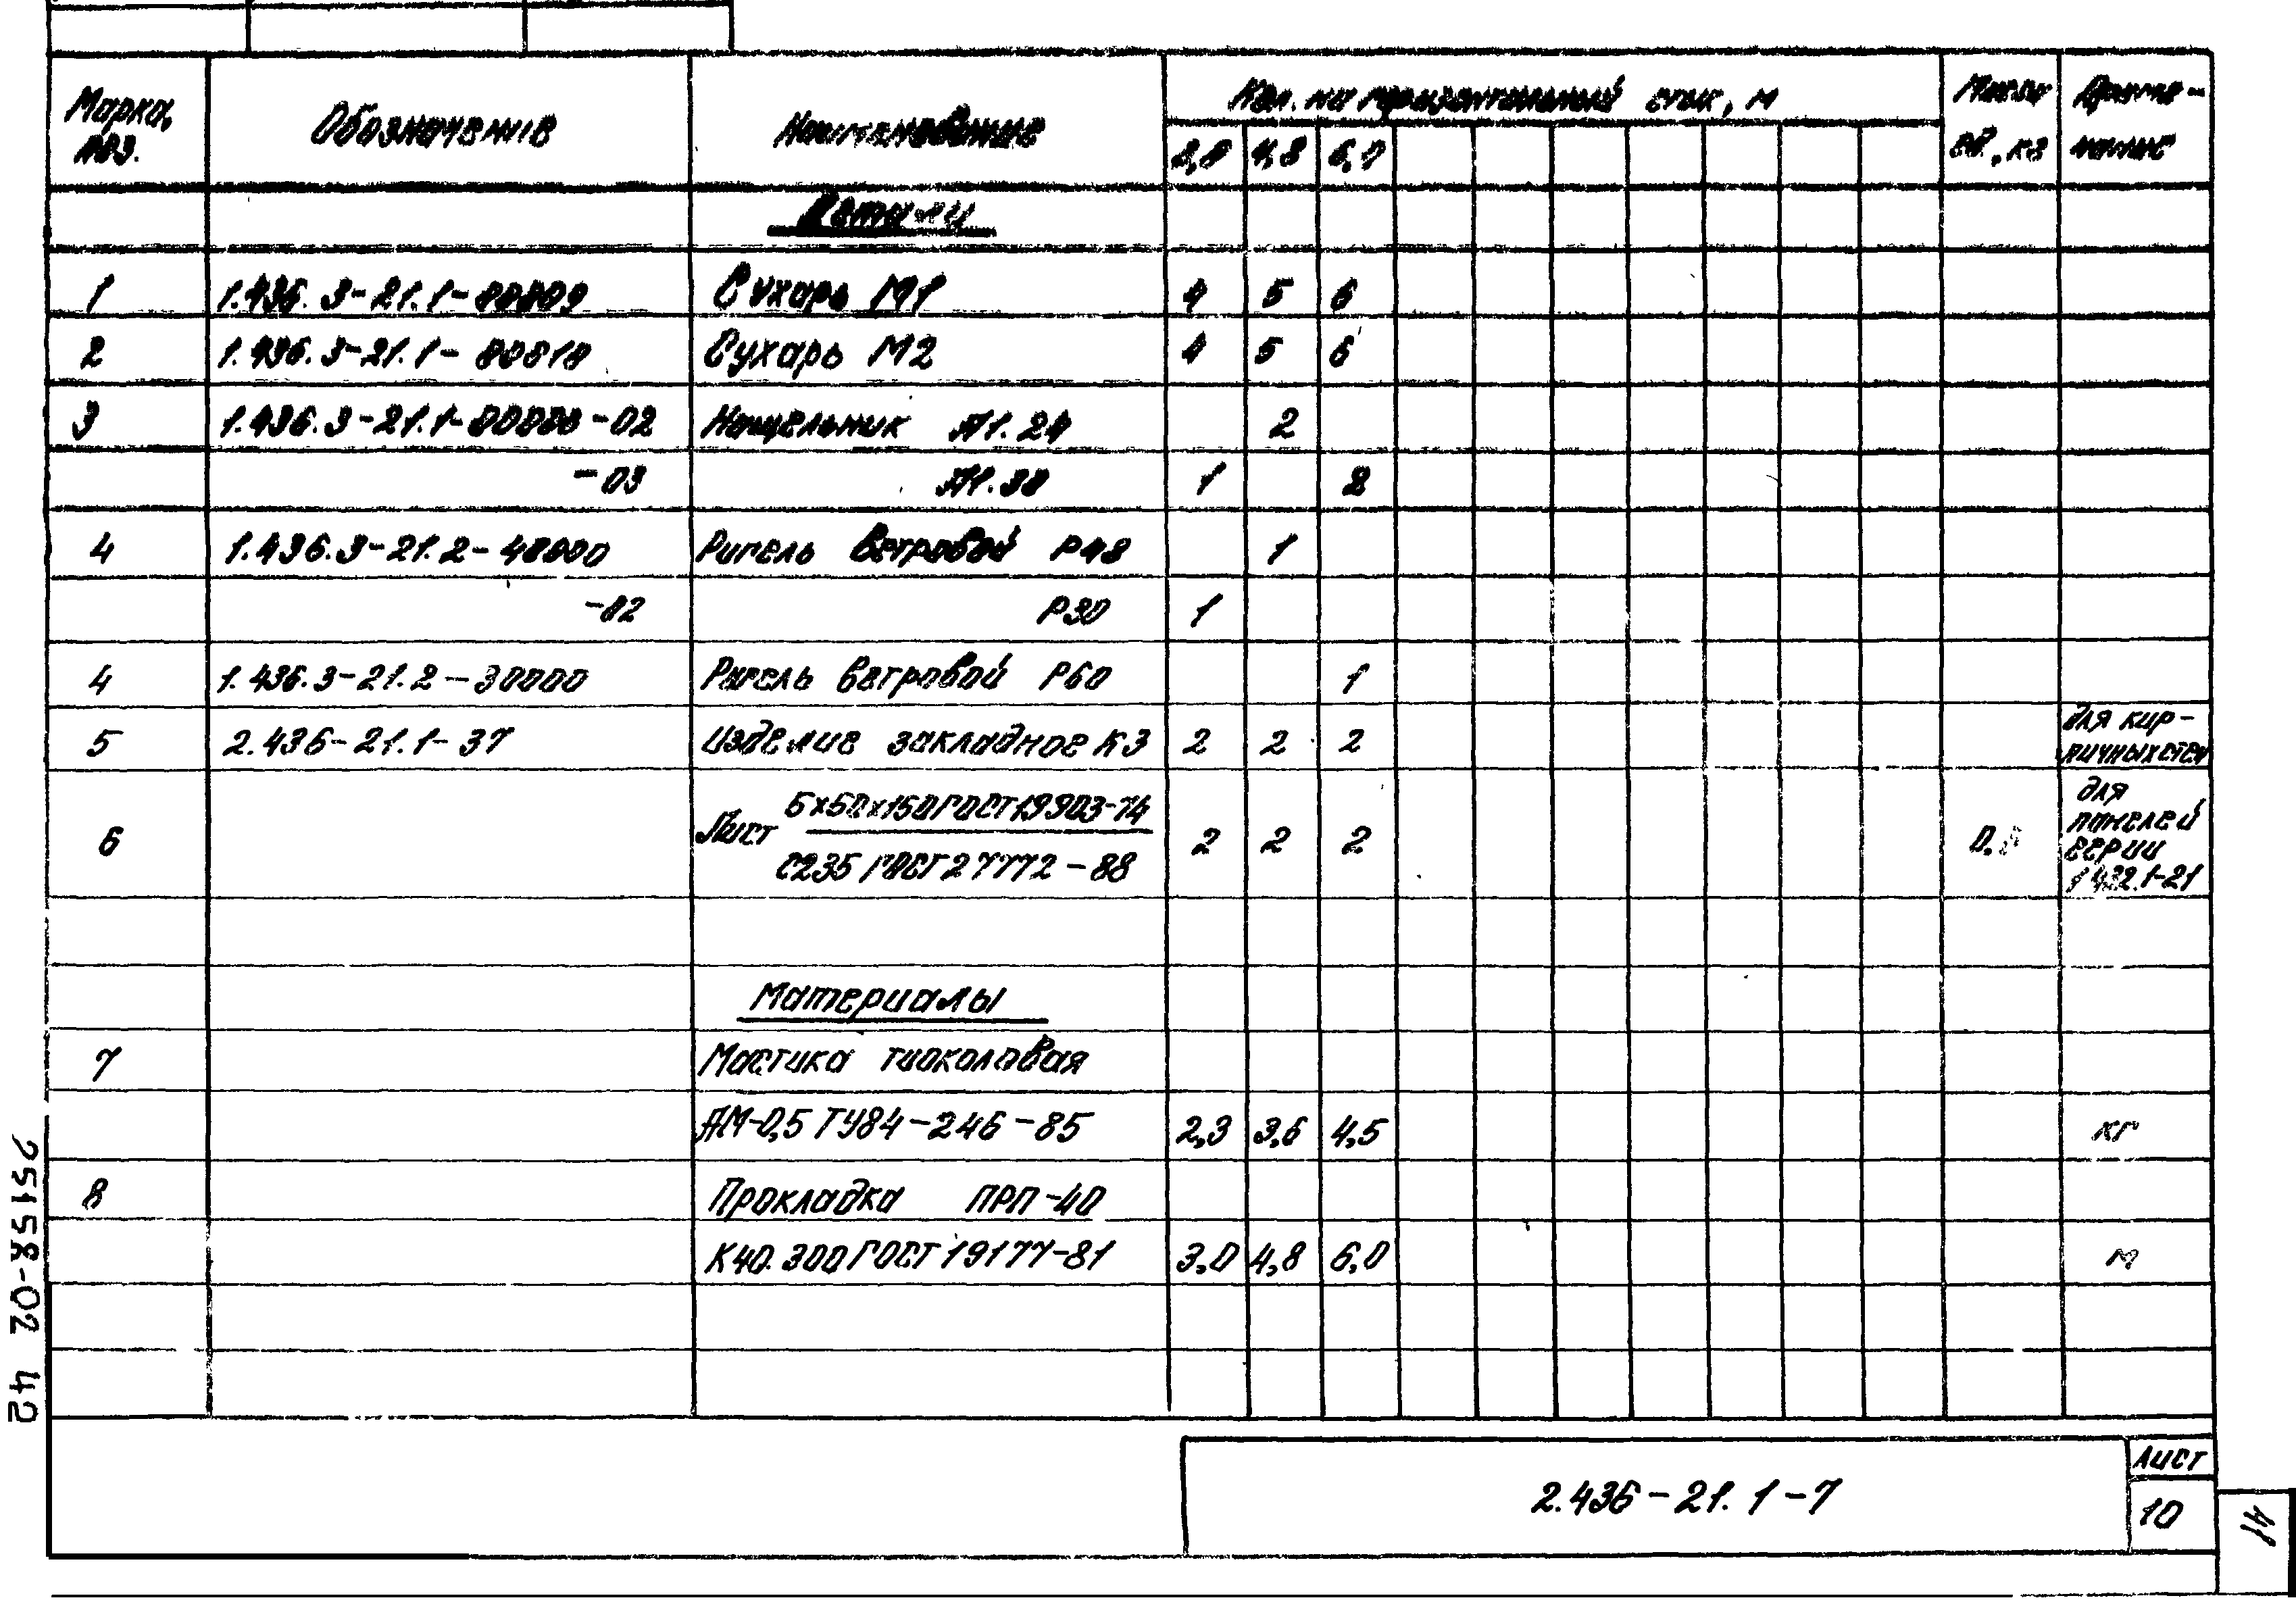 Марка, поз. Обозначение Наименование Кол. на горизонтальный стык, м Масса ед., кг Приме-
чание
3,0 4,8 6,0
Детали
1 1.436.3-21.1-00009 Сухарь М1 4 5 6
2 1.436.3-21.1-00010 Сухарь М2 4 5 6
3 1.436.3-21.1-00000-02 Нащельник Л1.24 2
-03 Л1.30 1 2
4 1.436.3-21.2-40000 Ригель ветровой Р48 1
-02 Р30 1
4 1.436.3-21.2-30000 Ригель ветровой Р60 1
5 2.436-21.1-37 Изделие закладное К3 2 2 2 для кир-
пичных стен
6 Лист 5х50х150 ГОСТ 19903-74
С235 ГОСТ 27772-88 2 2 2 для
панелей
серии
1.432.1-21
Материалы
7 Мастика тиоколовая
АМ-0,5 ТУ84-246-85 2,3 3,6 4,5 кг
8 Прокладка ПРП-40
К40.300 ГОСТ 19177-81 3,0 4,8 6,0 м
2.436-21.1-7
Лист
10
41
25158-02 42